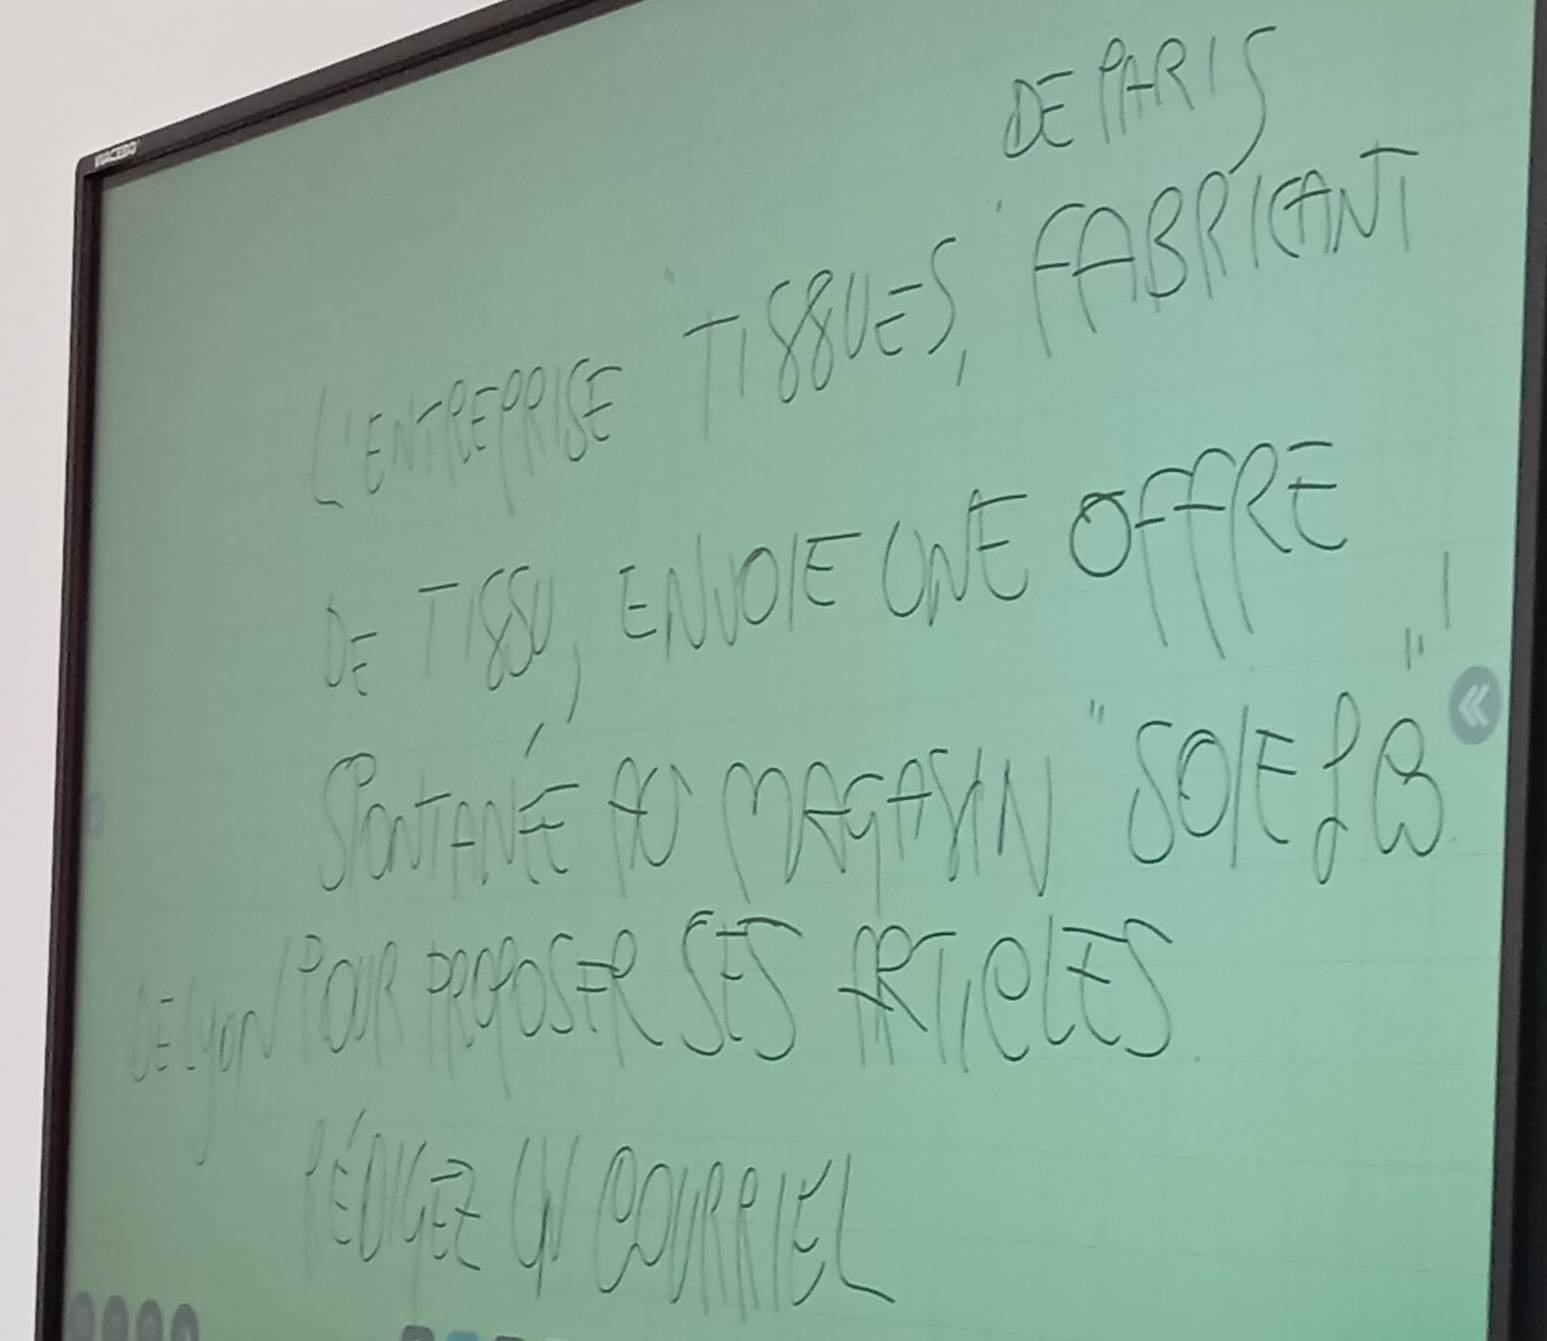 DE PARIS
L'ENTREPRISE "TISSUES," FABRICANT
DE TISSU, ENVOIE UNE OFFRE
SPONTANÉE AU MAGASIN "SOIE
DE LYON POUR PROPOSER SES ARTICLES.
RÉDIGEZ UN COURRIEL